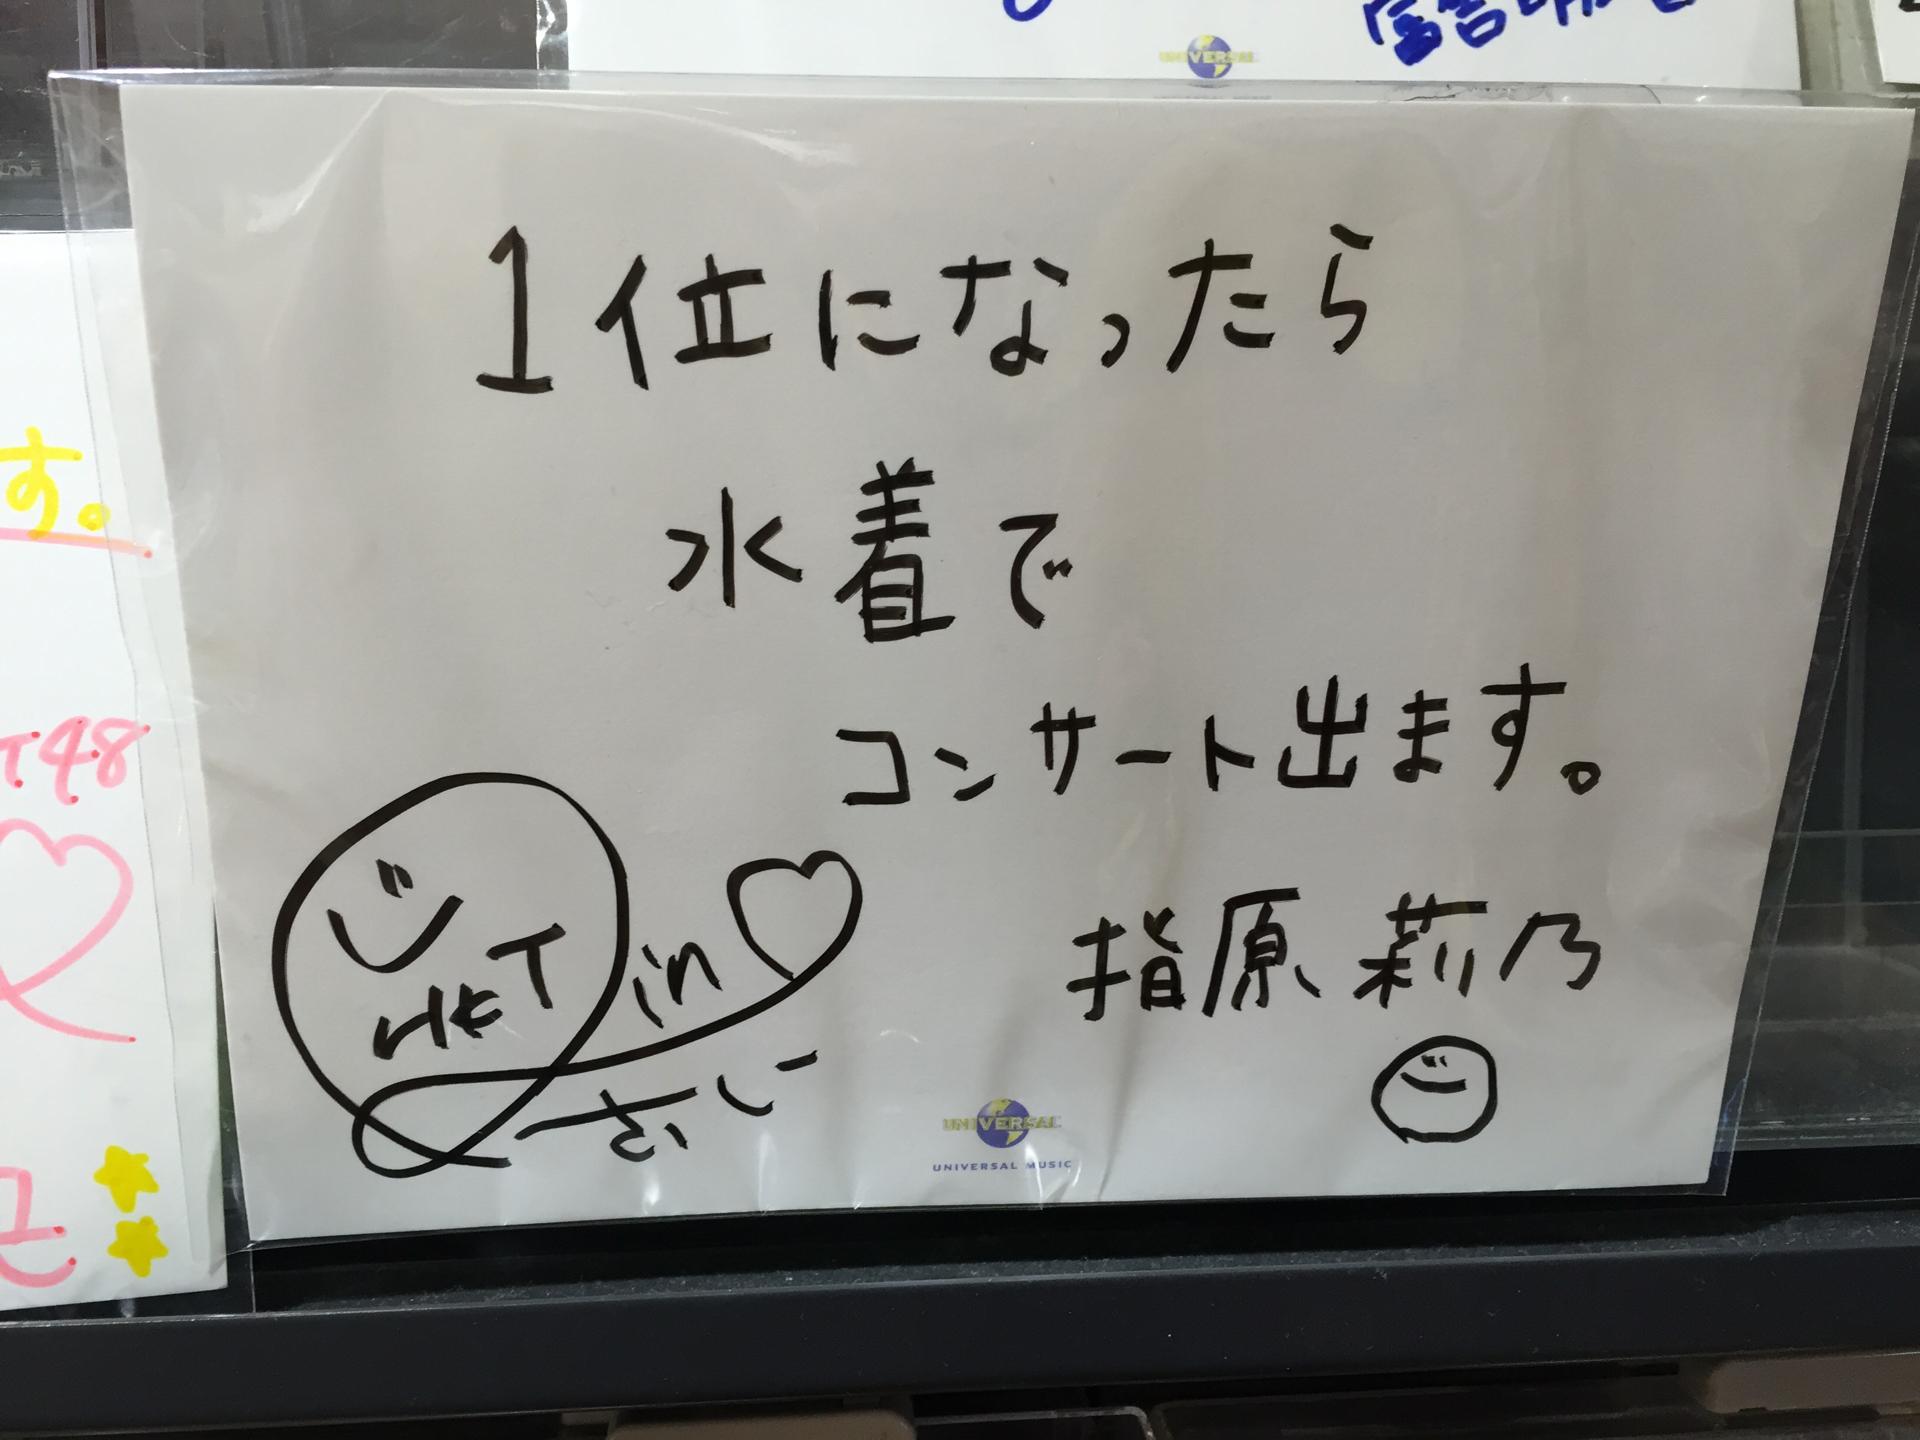 UNIVERSAL
1位になったら
水着で
コンサート出ます。
指原莉乃
HKT
in
UNIVERSAL
UNIVERSAL MUSIC
す。
T48